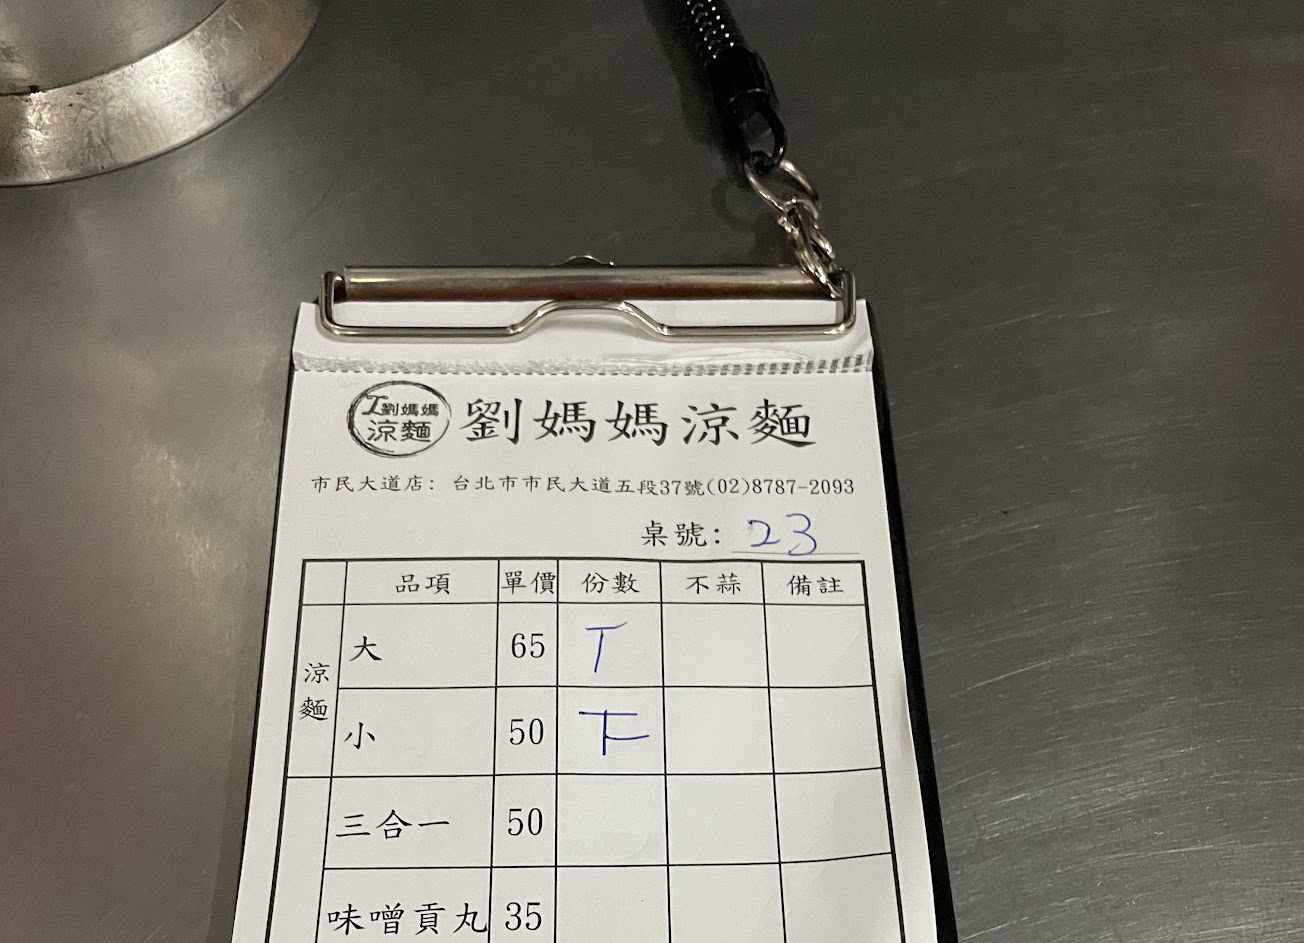 劉媽媽
涼麵
劉媽媽涼麵
市民大道店: 台北市市民大道五段37號(02)8787-2093
桌號: 23
品項 單價 份數 不蒜 備註
涼麵
大 65 T
小 50 下
三合一 50
味噌貢丸 35